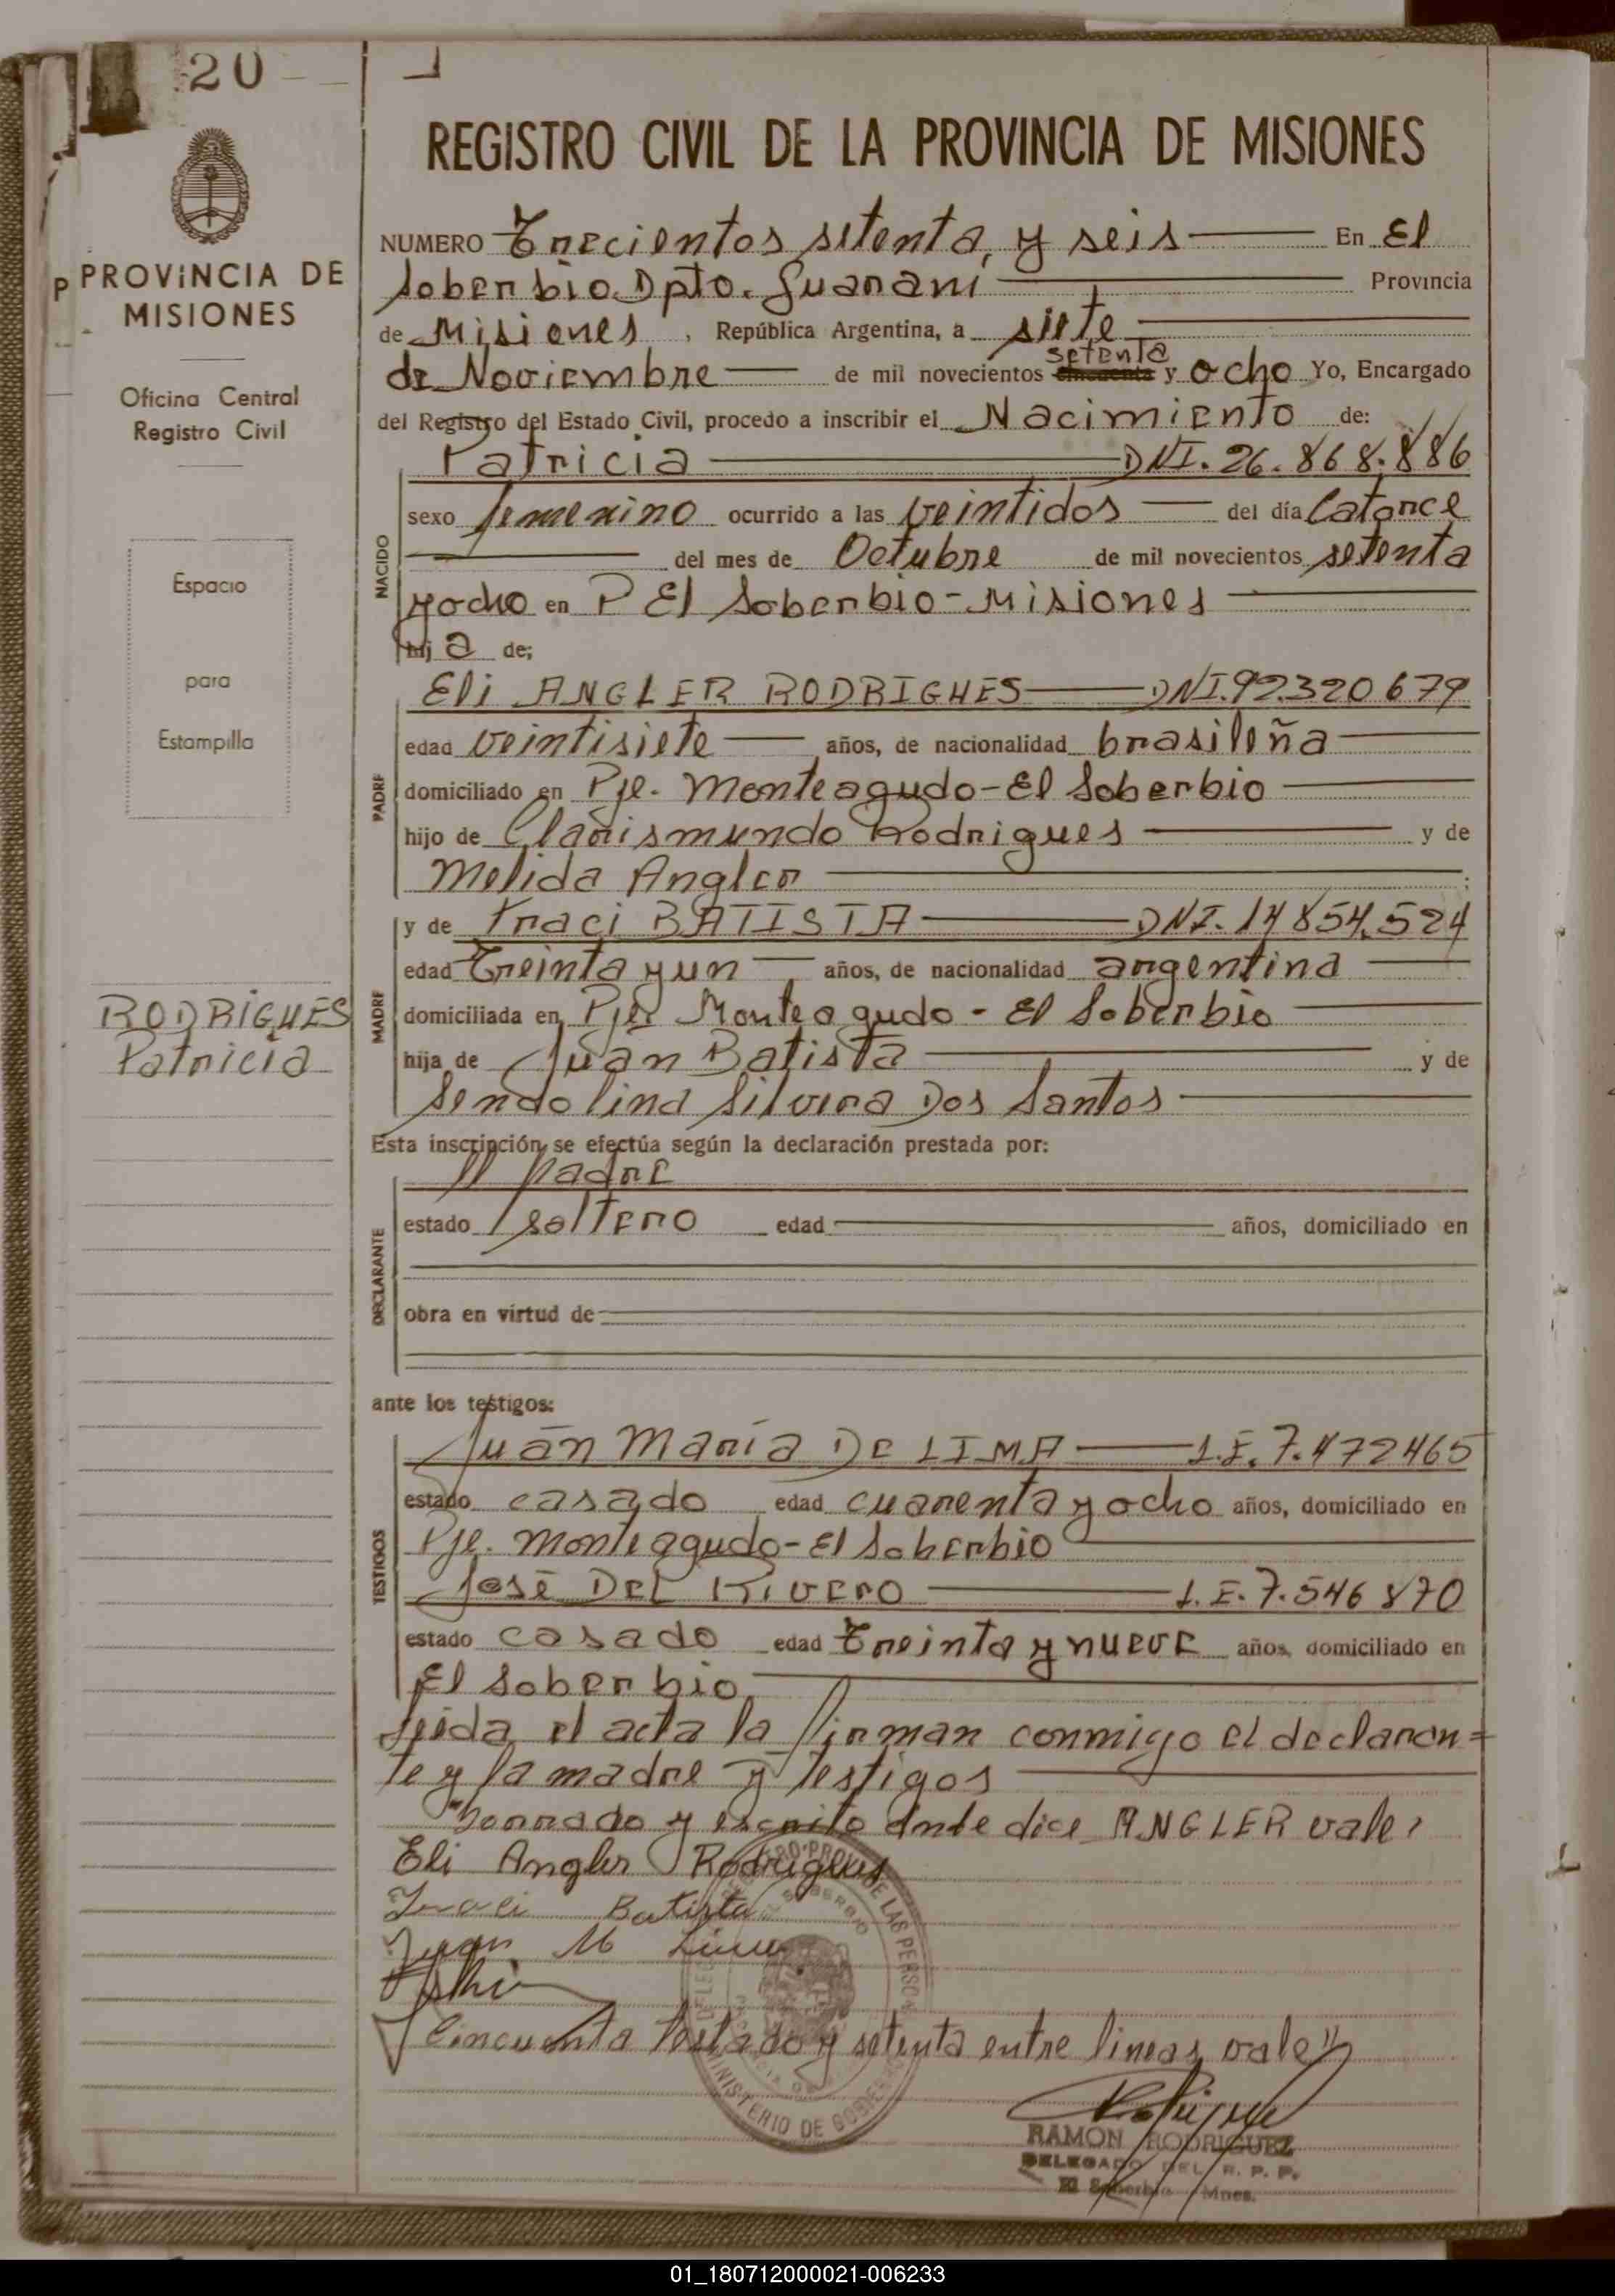 20
PROVINCIA DE
MISIONES
Oficina Central
Registro Civil
Espacio
para
Estampilla
RODRIGUES
Patricia
REGISTRO CIVIL DE LA PROVINCIA DE MISIONES
NUMERO Trecientos setenta y seis En El
Soberbio Dpto. Guarani Provincia
de Misiones , República Argentina, a siete
setenta
de Noviembre de mil novecientos cincuenta y ocho Yo, Encargado
del Registro del Estado Civil, procedo a inscribir el Nacimiento de:
Patricia DNI. 26.868.886
NACIDO
sexo femenino ocurrido a las veintidos del día Catorce
del mes de Octubre de mil novecientos setenta
y ocho en P El Soberbio - Misiones
hij a de;
Eli ANGLER RODRIGUES DNI. 92.320679
PADRE
edad veintisiete años, de nacionalidad brasileña
domiciliado en Pje. Monteagudo - El Soberbio
hijo de Clarismundo Rodrigues y de
Melida Angler ;
y de Iraci BATISTA DNI. 14854.524
MADRE
edad Treinta y un años, de nacionalidad argentina
domiciliada en Pje Monteagudo - El Soberbio
hija de Juan Batista y de
Sendolina Silvera Dos Santos
Esta inscripción se efectúa según la declaración prestada por:
El Padre
DECLARANTE
estado soltero edad años, domiciliado en
obra en virtud de
ante los testigos:
Juan María De LIMA L.E. 7.472465
TESTIGOS
estado casado edad cuarenta y ocho años, domiciliado en
Pje. Monteagudo - El Soberbio
José DEL RIVERO L.E. 7.546870
estado casado edad Treinta y nueve años, domiciliado en
El Soberbio
Leida el acta la firman conmigo el declaran=
te y la madre y testigos
Borrado y escrito donde dice ANGLER vale
Eli Angler Rodrigues
Iraci Batista
Juan M Lima
Cincuenta testado y setenta entre lineas vale
MINISTERIO DE GOBIERNO
RAMON RODRIGUEZ
DELEGADO DEL R. P. P.
El Soberbio Mnes.
01_180712000021-006233